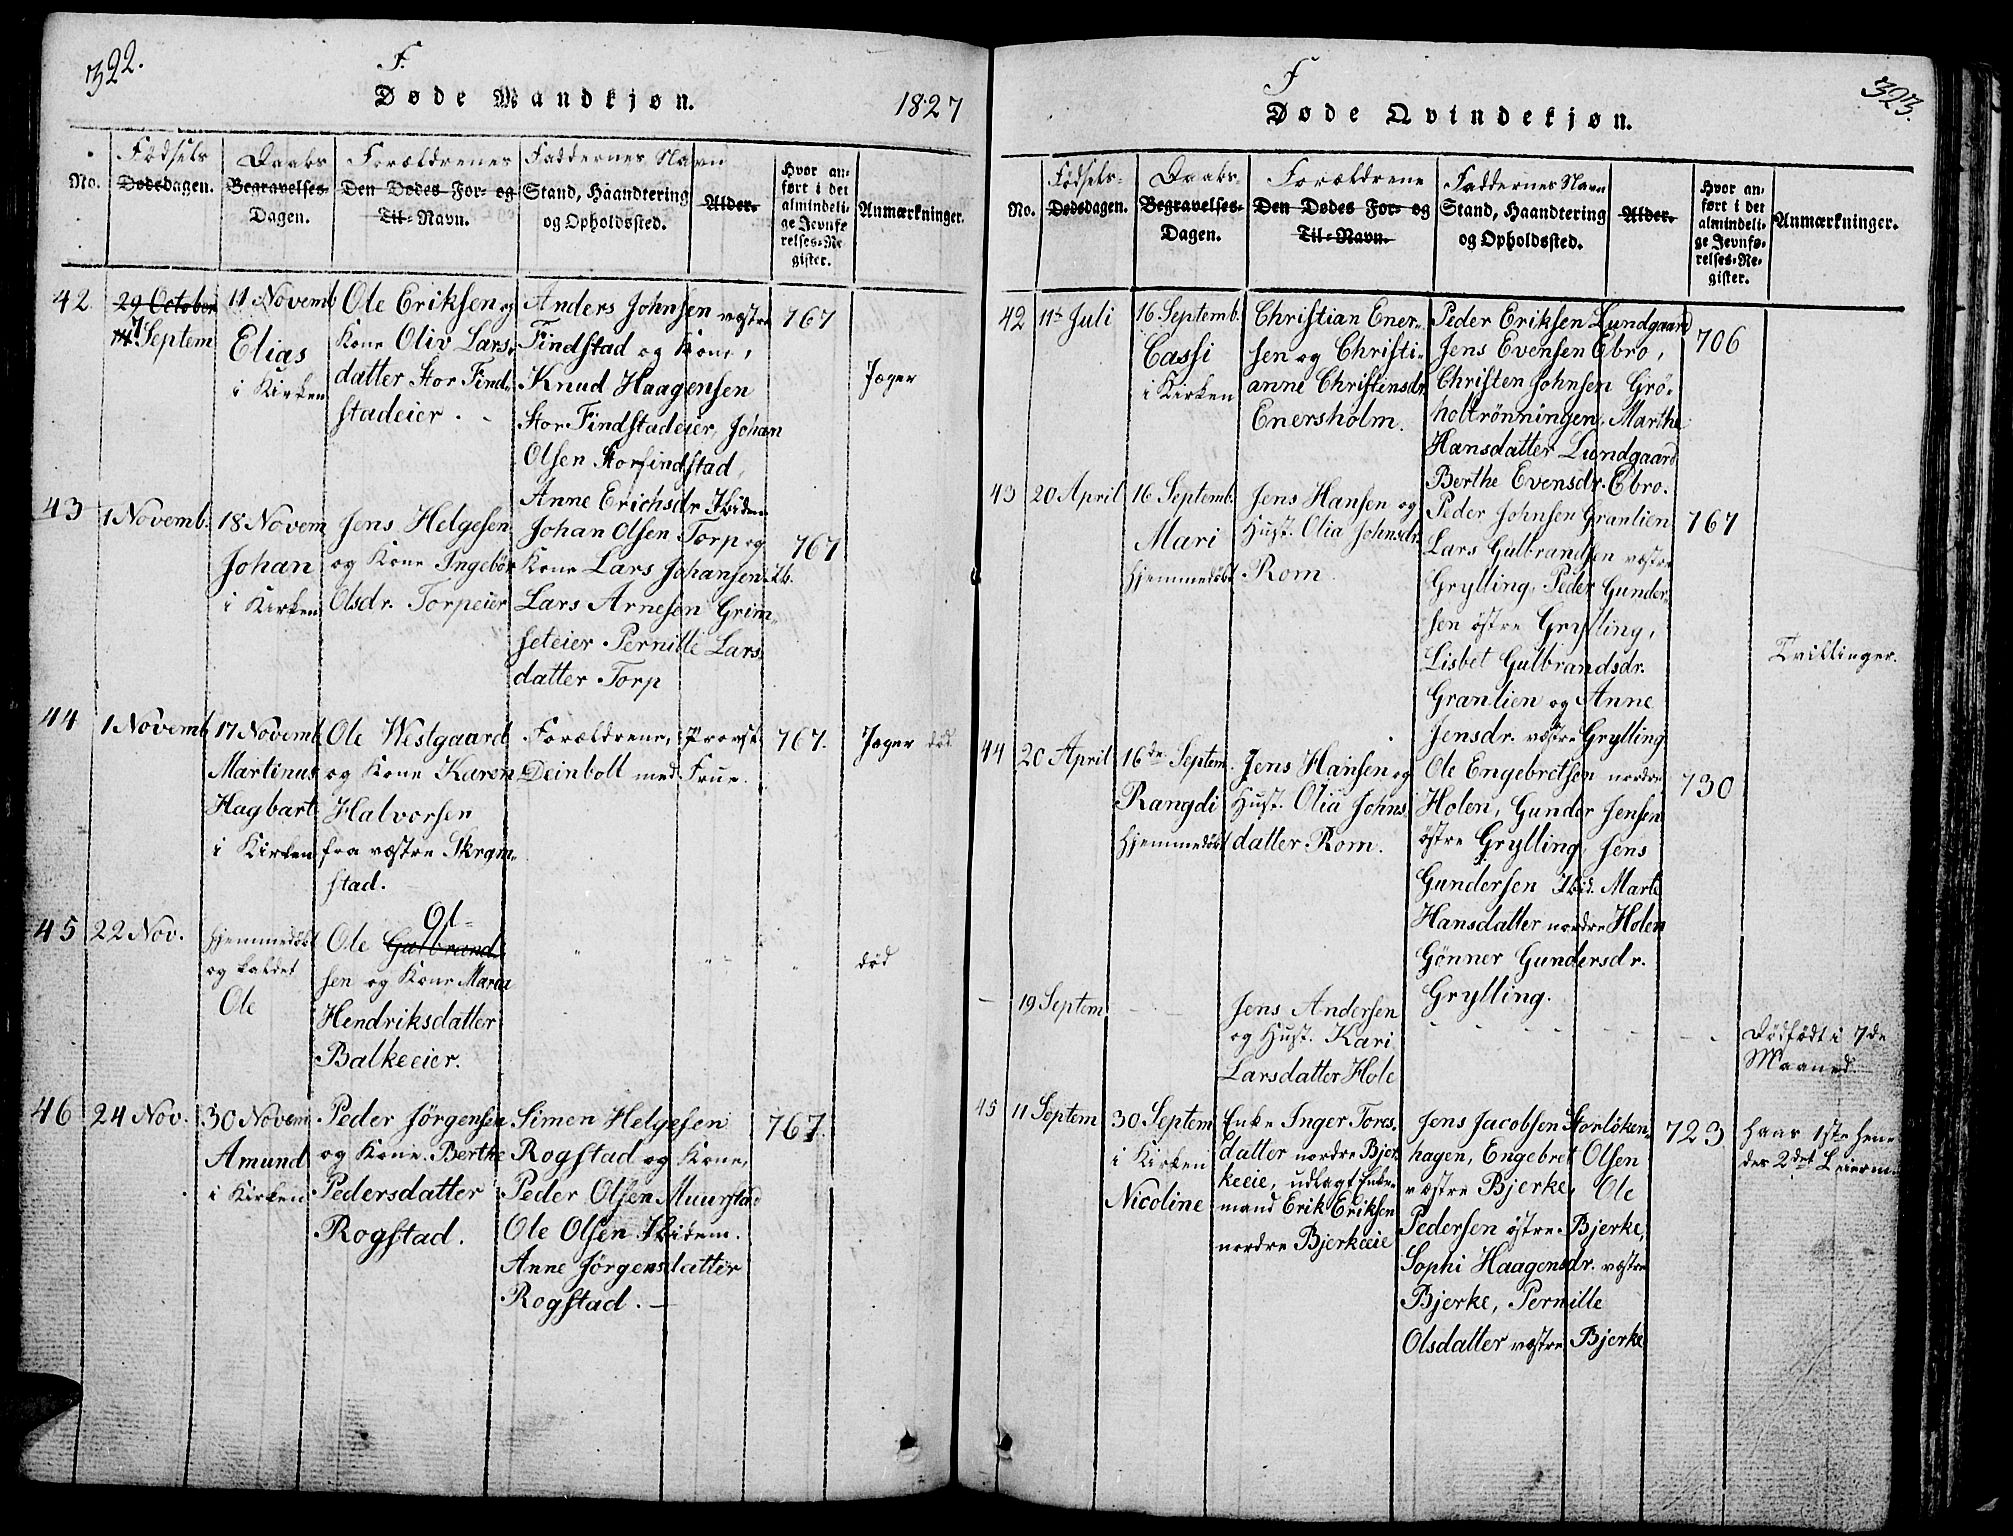 322.
F.
Døde Mandkjøn.
1827
No.
Fødsels
Dødsdagen.
Daabs
Begravelses-
Dagen.
Forældrenes
Den Dødes For- og
Til-Navn.
Faddernes Navn
Stand, Haandtering
og Opholdssted.
Alder.
Hvor an-
ført i det
almindeli-
ge Jevnfø-
relses-Re-
gister.
Anmærkninger.
42
29 October
7 Septem
11 Novemb
Elias
i Kirken
Ole Eriksen og
Kone Oliv Lars-
datter Stor Find-
stadeier.
Anders Johnsen vestre
Findstad og Kone,
Knud Haagensen
Stor Findstadeier, Johan
Olsen Storfindstad,
Anne Erichsdr Ibidem
767
Jæger
43
1 Novemb.
18 Novem
Johan
i Kirken
Jens Helgesen
og Kone Ingebor
Olsdr. Torpeier
Johan Olsen Torp og
Kone Lars Johansen Ib.
Lars Arnesen Grim-
seteier Pernille Lars-
datter Torp
767
44
1 Novemb
17 Novemb
Martinus
Hagbart
i Kirken
Ole Westgaard
og Kone Karen
Halvorsen
fra vestre Skram-
stad.
Forældrene, Provst
Deinboll med Frue.
767.
Jæger død
45
22 Nov.
hjemmedøbt
og kaldet
Ole
Ol-
Ole Gulbrand-
sen og Kone Maria
Hendriksdatter
Balkeeier.
død
46
24 Nov.
30 Novem
Amund
i Kirken
Peder Jørgensen
og Kone Berthe
Pedersdatter
Rogstad.
Simen Helgesen
Rogstad og Kone,
Peder Olsen Muurstad
Ole Olsen Ibidem.
Anne Jørgensdatter
Rogstad.
767.
323.
F
Døde Qvindekjøn.
No.
Fødsels-
Dødsdagen.
Daabs-
Begravelses-
Dagen.
Forældrene
Den Dødes For- og
Til-Navn.
Faddernes Navn
Stand, Haandtering
og Opholdssted.
Alder.
Hvor an-
ført i det
almindeli-
ge Jevnfø-
relses-Re-
gister.
Anmærkninger.
42
11te Juli
16 Septemb.
Cassi
i Kirken
Christian Ener-
sen og Christi-
anne Christensdr
Enersholm.
Peder Eriksen Lundgaard
Jens Evensen Ebro,
Christen Johnsen Grø-
holtrönningen, Marthe
Hansdatter Lundgaard
Berthe Evensdr. Ebro.
706
43
20 April
16 Septemb.
Mari
hjemmedøbt
Jens Hansen og
Hust. Olia Johnsdr.
Rom.
Peder Johnsen Granlien
Lars Gulbrandsen vestre
Grylling, Peder Gunder-
sen östre Grylling,
Lisbet Gulbrandsdr.
Granlien og Anne
Jensdr. vestre Grylling
767
Tvillinger.
44
20 April
16de Septem.
Rangdi
hjemmedøbt
Jens Hansen og
Hust. Olia Johns-
datter Rom.
Ole Engebretsen nordre
Holen, Gunder Jensen
östre Grylling, Jens
Gundersen Ibid. Marte
Hansdatter nordre Holen
Gönner Gundersdr.
Grylling.
730
19 Septem
Jens Andersen
og Hust. Kari
Larsdatter Hole
Dødfödt i 7de
Maaned
45
11 Septem
30 Septem
i Kirken
Nicoline
Enke Inger Tores-
datter nordre Bjer-
keeie, udlagt Enke-
mand Erik Eriksen
nordre Bjerkeeie
Jens Jacobsen Storlöken-
hagen, Engebret Olsen
vestre Bjerke, Ole
Pedersen östre Bjerke,
Sophi Haagensdr. vestre
Bjerke, Pernille
Olsdatter vestre Bjerke
723
Haar 1ste
der 2det Leierm